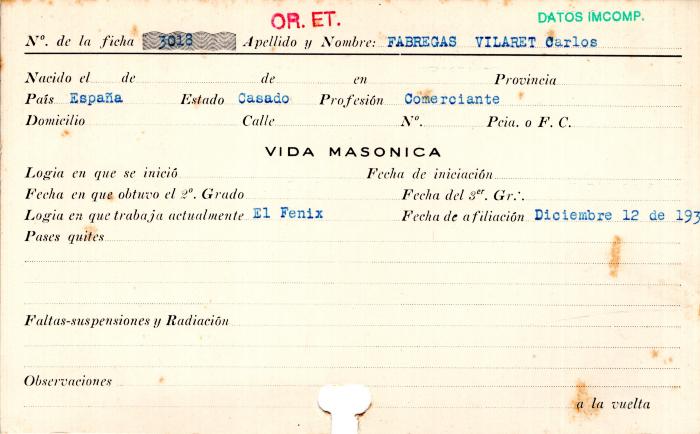 OR. ET.
DATOS IMCOMP.
Nº. de la ficha 3018 Apellido y Nombre: FABREGAS VILARET Carlos
Nacido el de de en Provincia
País España Estado Casado Profesión Comerciante
Domicilio Calle Nº. Pcia. o F. C.
VIDA MASONICA
Logia en que se inició Fecha de iniciación
Fecha en que obtuvo el 2º. Grado Fecha del 3er. Gr∴.
Logia en que trabaja actualmente El Fenix Fecha de afiliación Diciembre 12 de 193
Pases quites
Faltas-suspensiones y Radiación
Observaciones
a la vuelta